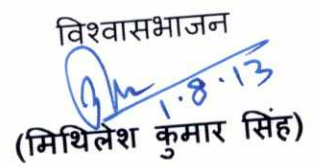 विश्वासभाजन
1.8.13
(मिथिलेश कुमार सिंह)